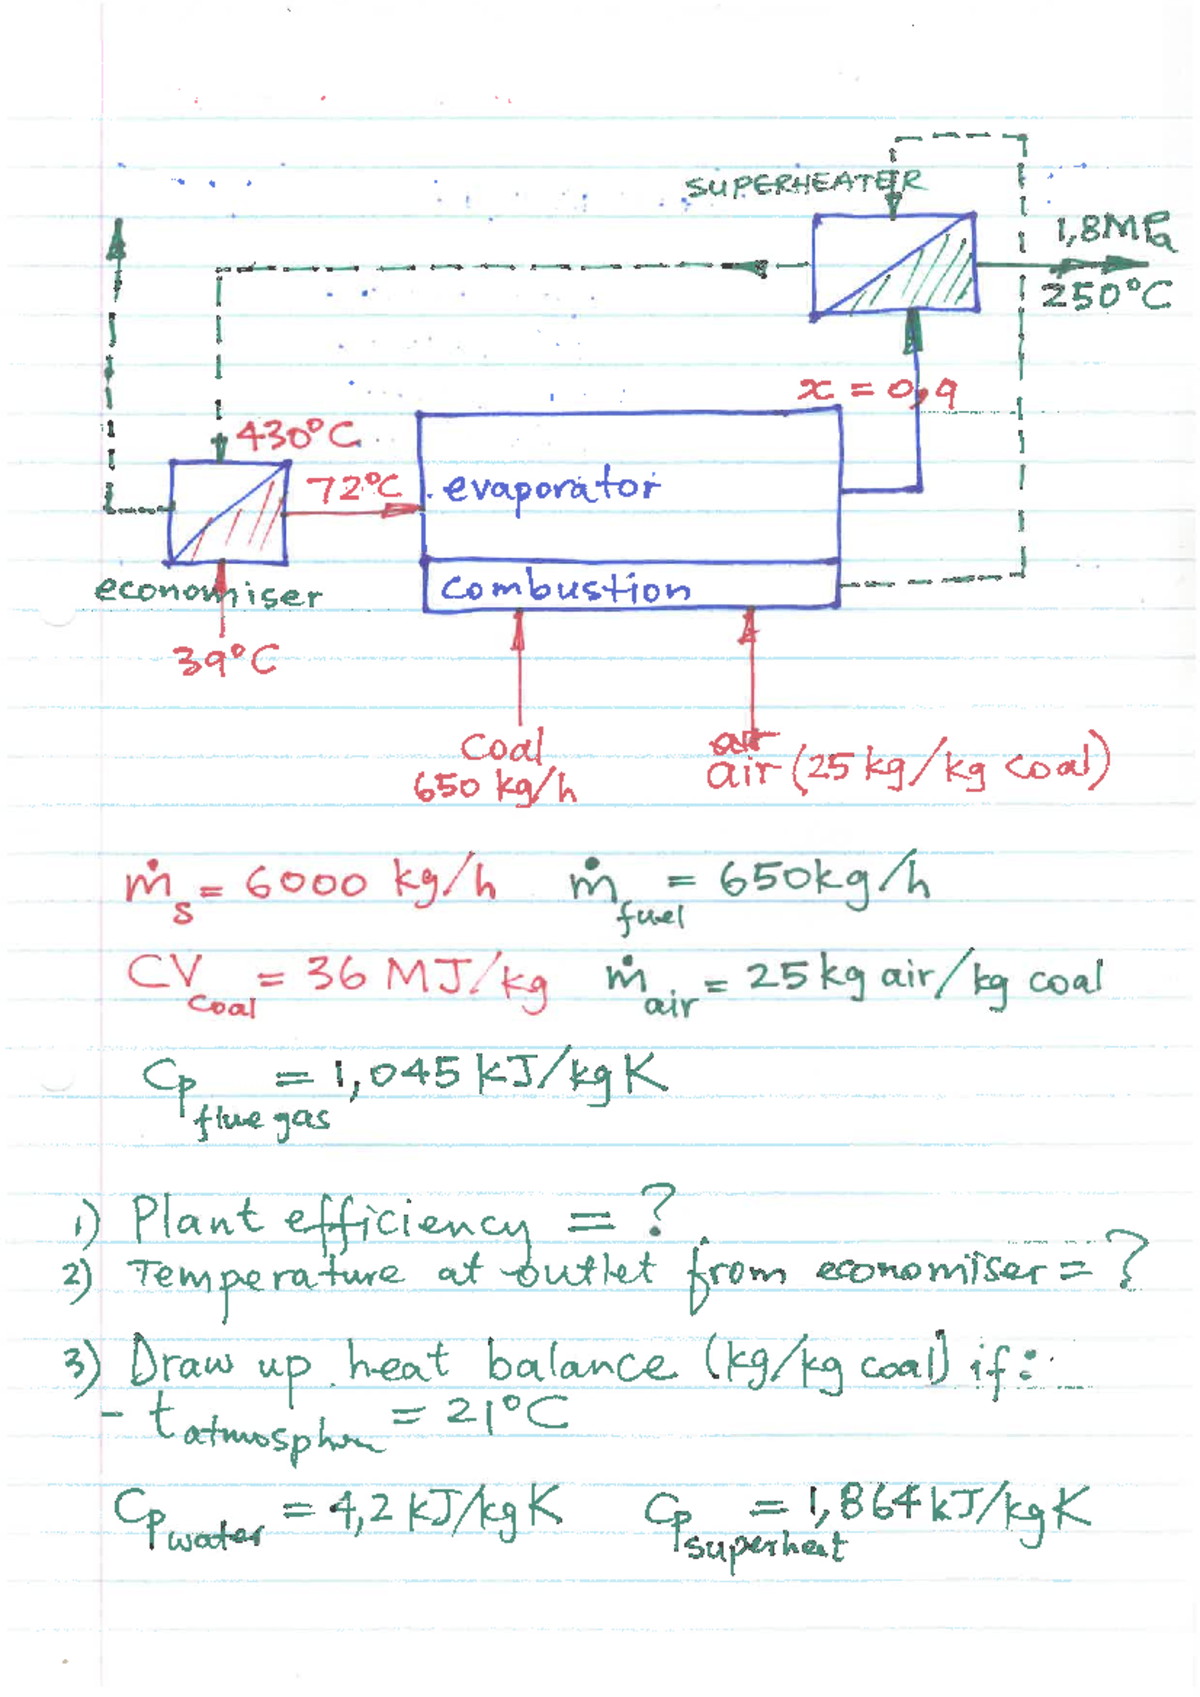 SUPERHEATER
1,8MPa
250°C
x = 0,9
430°C
72°C
evaporator
combustion
economiser
39°C
Coal
650 kg/h
air
air (25 kg/kg coal)
ṁs = 6000 kg/h ṁfuel = 650kg/h
CVcoal = 36 MJ/kg ṁair = 25 kg air/kg coal
Cp flue gas = 1,045 kJ/kgK
1) Plant efficiency = ?
2) Temperature at outlet from economiser = ?
3) Draw up heat balance (kg/kg coal) if:
- tatmosphere = 21°C
Cpwater = 4,2 kJ/kgK Cpsuperheat = 1,864 kJ/kgK